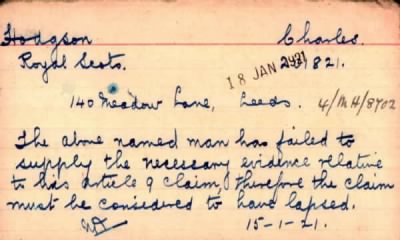 Hodgson Charles.
Royal Scots. 23821.
18 JAN 1921
140 Meadow Lane, Leeds. 4/MH/8702
The above named man has failed to
supply the necessary evidence relative
to his article 9 claim, therefore the claim
must be considered to have lapsed.
15-1-21.